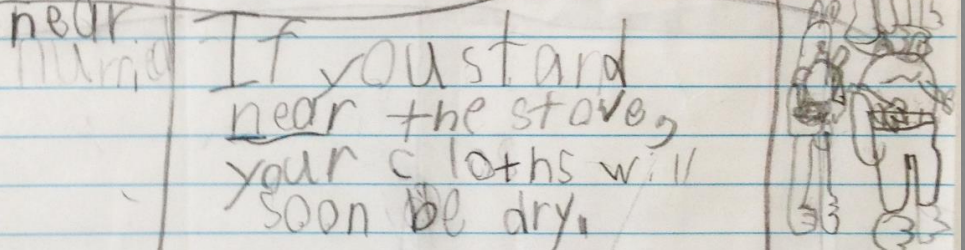 near
If you stand
near the stove,
your cloths will
soon be dry.